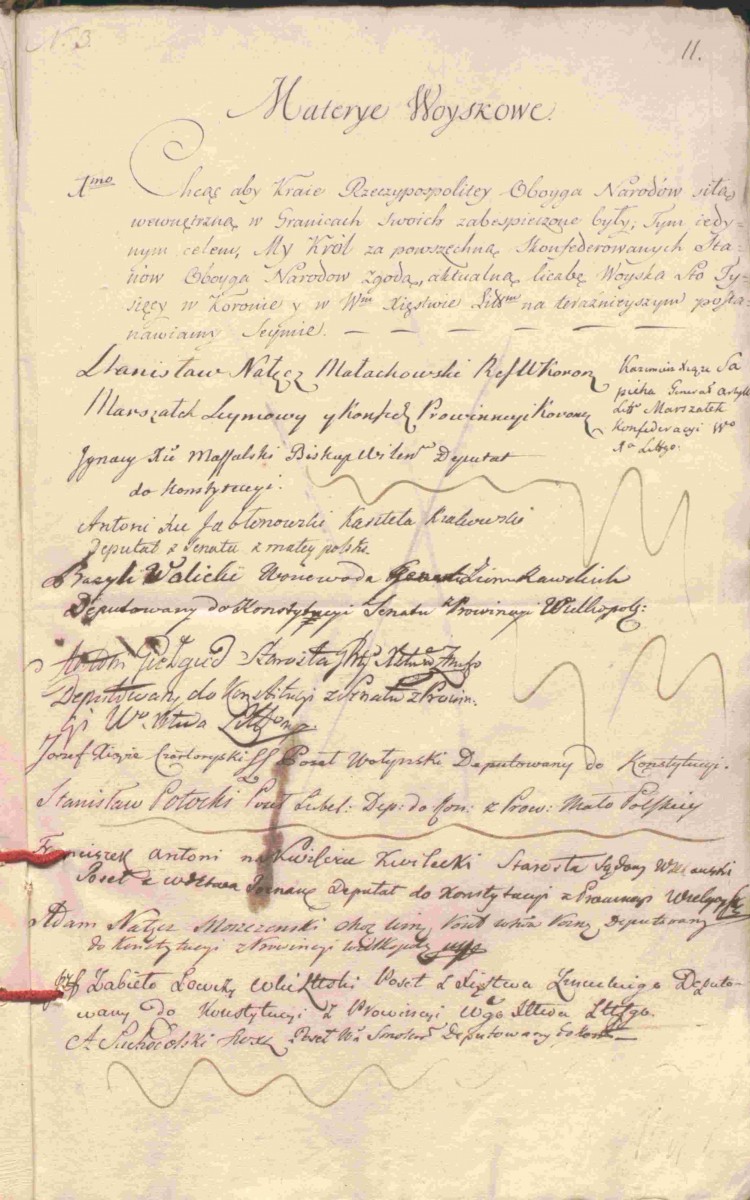 N. 3.
11.
Materye Woyskowe.
1mo Chcąc aby Kraie Rzeczypospolitey Oboyga Narodów siłą
wewnętrzną w Granicach swoich zabespieczone były, Tym iedy-
nym celem, My Król za powszechną Skonfederowanych Sta-
nów Oboyga Narodow zgodą, aktualną liczbę Woyska Sto Ty-
sięcy w Koronie y w Wm Xięstwie Littm na teraznieyszym posta-
nawiamy Seymie.
Stanisław Nałęcz Małachowski Ref W Koron
Marszałek Seymowy y Konfed Prowincyi Koronę
Kazimierz Xiąże Sa
pieha Generał Artyll
Litt Marszałek
Konfederacyi Wo
Xa Littgo.
Jgnacy Xże Massalski Biskup Wilen Deputat
do Konstytucyi.
Antoni Xże Jabłonowski Kasztela Krakowski
Deputat z Senatu z małey polski
Bazyli Walicki Woiewoda Rawskich
Deputowany do Konstytucyi z Senatu z Prowincyi Wielkopols:
Antoni Giełgud Starosta
Deputowany do Konstitucyi z Senatu z Prowin-
cyi Wo Xtwa Litt
Jozef Xiąże Czartoryski Poseł Wołynski Deputowany do Konstytucyi.
Stanisław Potocki Poseł Lubel: Dep: do Con: z Prow: Mało Polskiey
Franciszek Antoni na Kwilczu Kwilecki Starosta Sądowy
Poseł z wdztwa Poznans Deputat do Konstytucyi z Prowincyi
Adam Nałęcz Moszczenski Poseł Deputowany
do Konstytucyi z Prowincyi wielkopols
Jzf Zabiełło Łowczy W Littski Poseł z Xięstwa Zmudzkiego Deputo-
wany do Konstytucyi z Prowincyi Wgo Xtwa Littgo.
A Suchodolski Poseł Wa Smolen Deputowany do kon